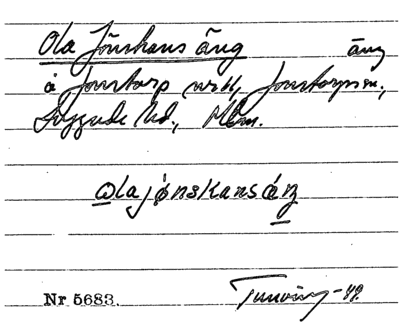 Ola Jönskans äng äng
å Jonstorp nr 11, Jonstorps sn.,
Luggude hd., Mlm.
ωlajönskansáŋ
Nr 5683. -49.